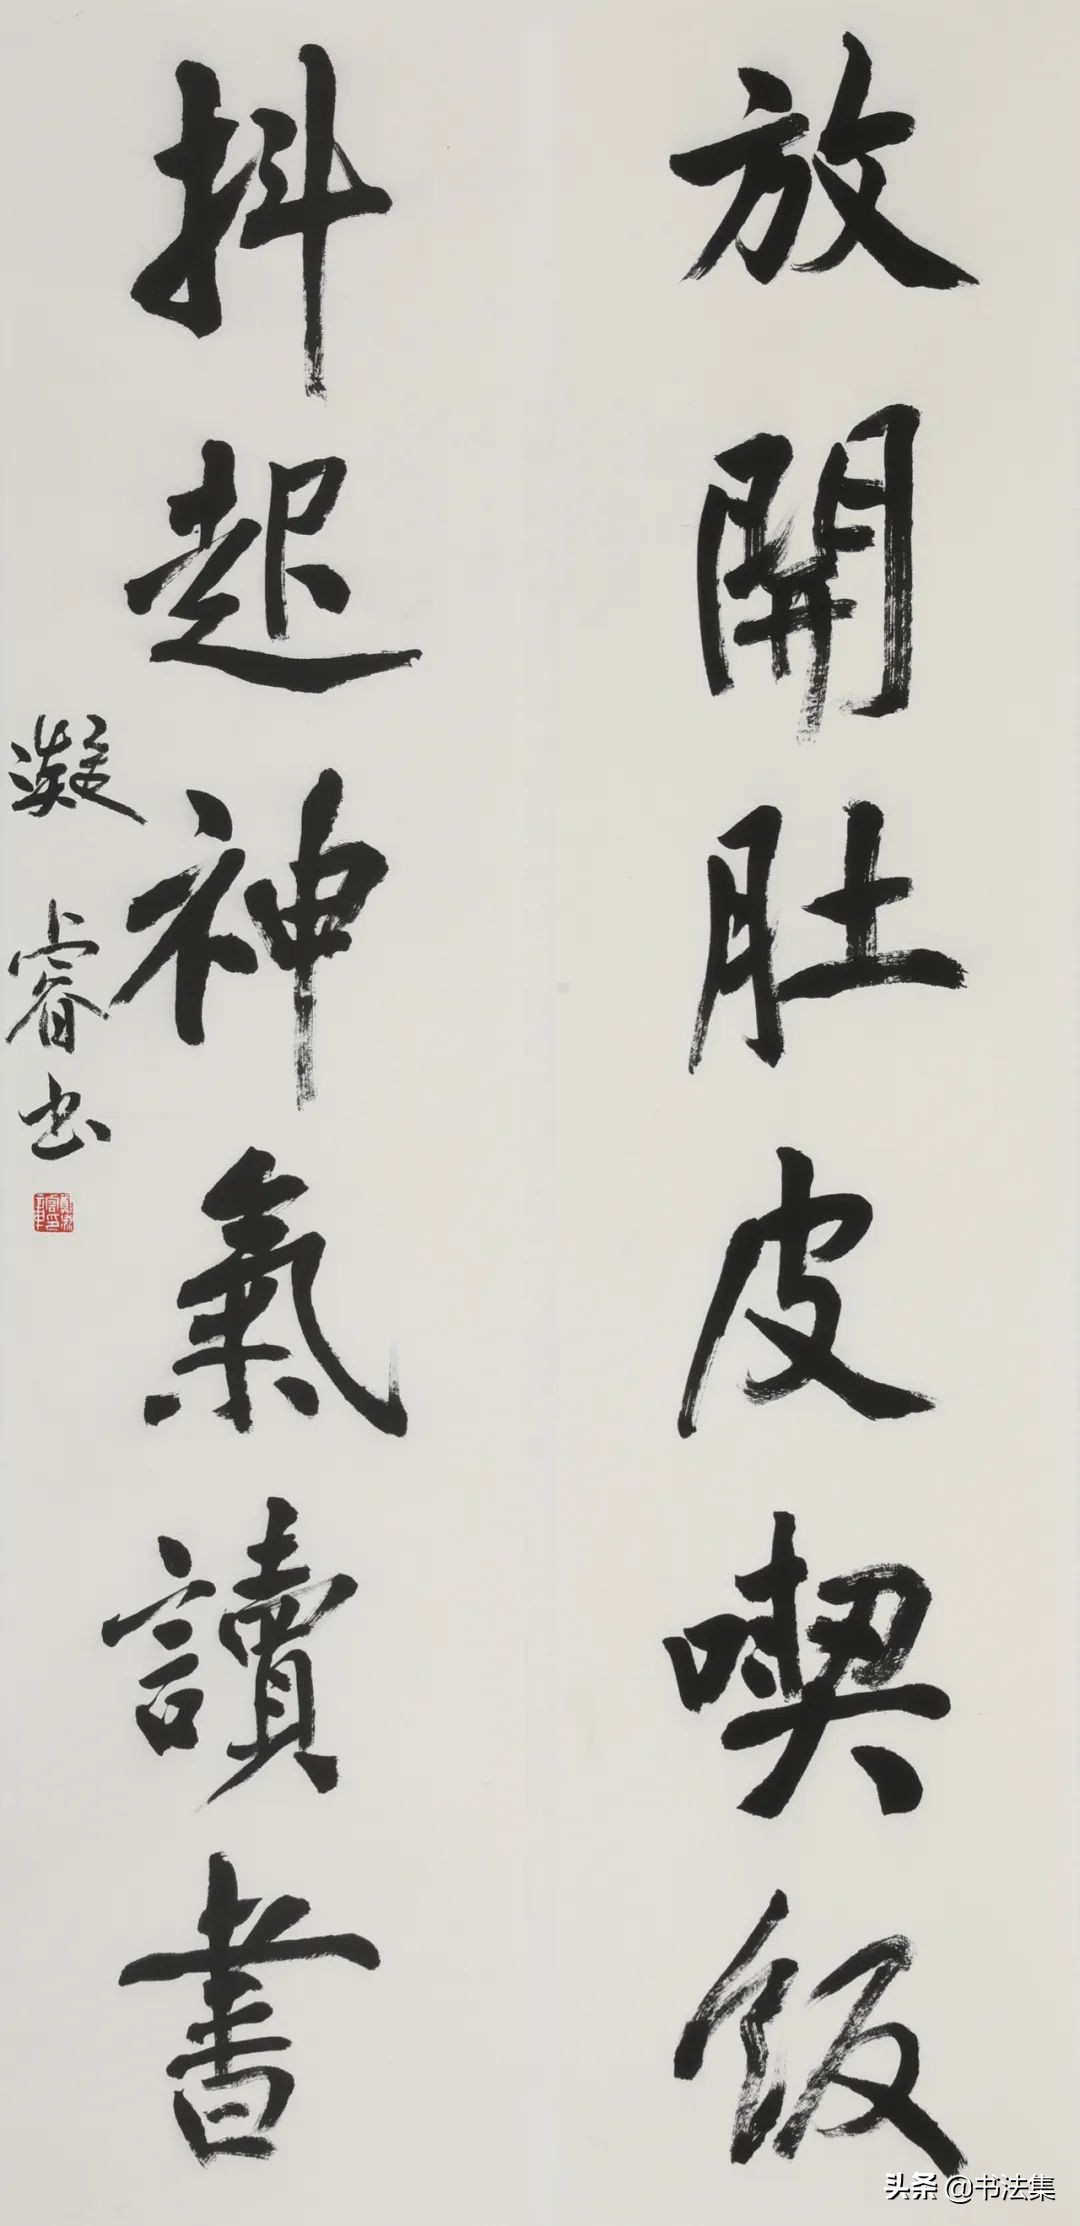 放開肚皮喫飯
抖起神氣讀書
凝睿书
头条 @书法集